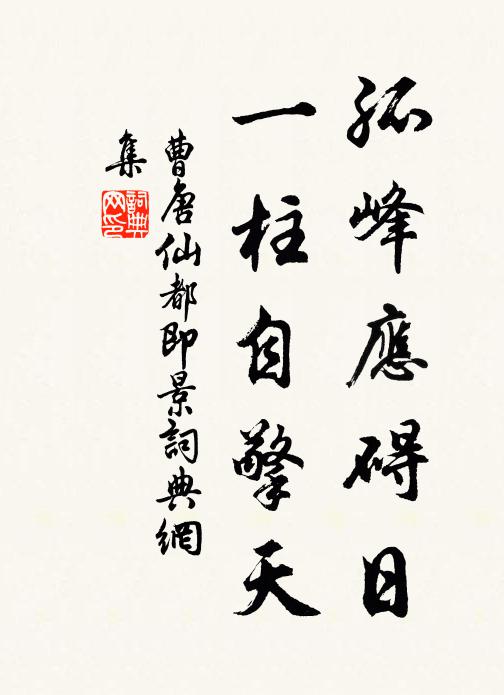 孤峰應碍日
一柱自擎天
曹唐仙都即景詞典網
集
詞典網印